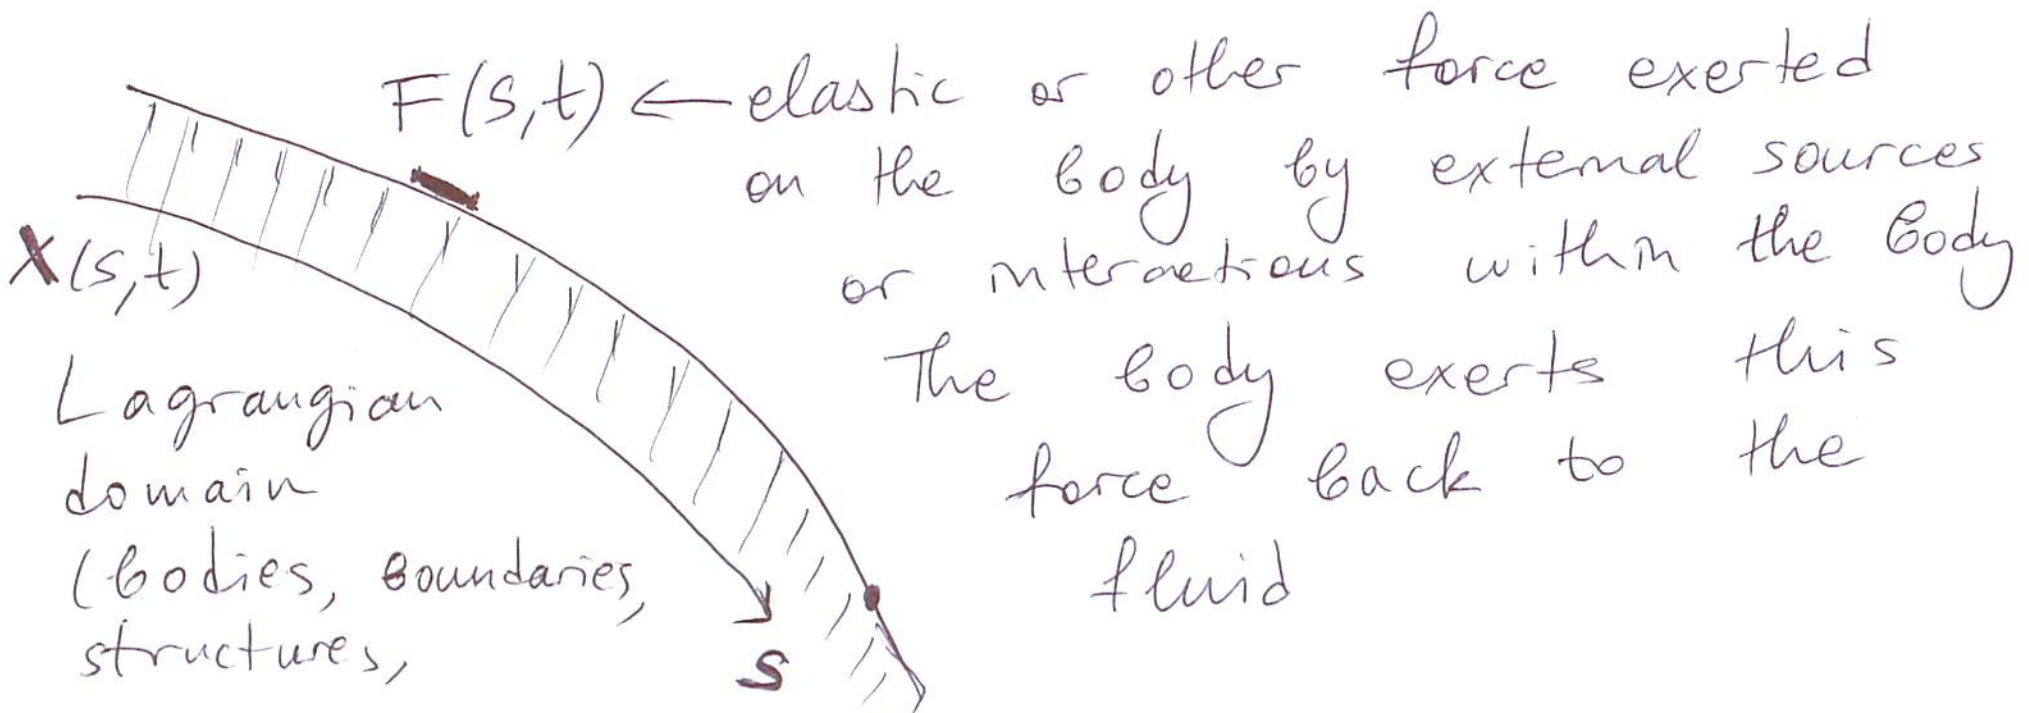 F(s,t) ← elastic or other force exerted
on the body by external sources
or interactions within the body
The body exerts this
force back to the
fluid
X(s,t)
Lagrangian
domain
(bodies, boundaries,
structures,
s